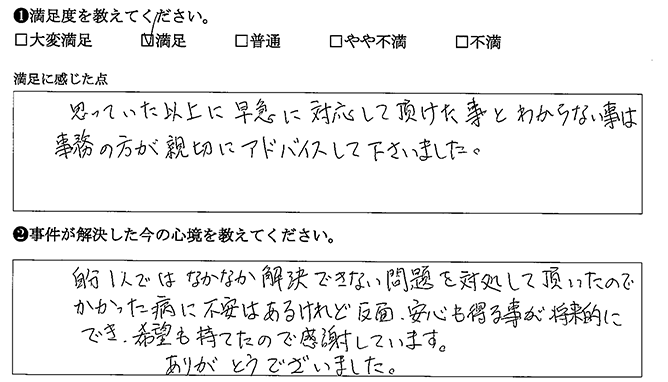 ❶満足度を教えてください。
□大変満足 ☑満足 □普通 □やや不満 □不満
満足に感じた点
思っていた以上に早急に対応して頂けた事とわからない事は
事務の方が親切にアドバイスして下さいました。
❷事件が解決した今の心境を教えてください。
自分1人ではなかなか解決できない問題を対処して頂いたので
かかった病に不安はあるけれど反面、安心も得る事が将来的に
でき、希望も持てたので感謝しています。
ありがとうございました。